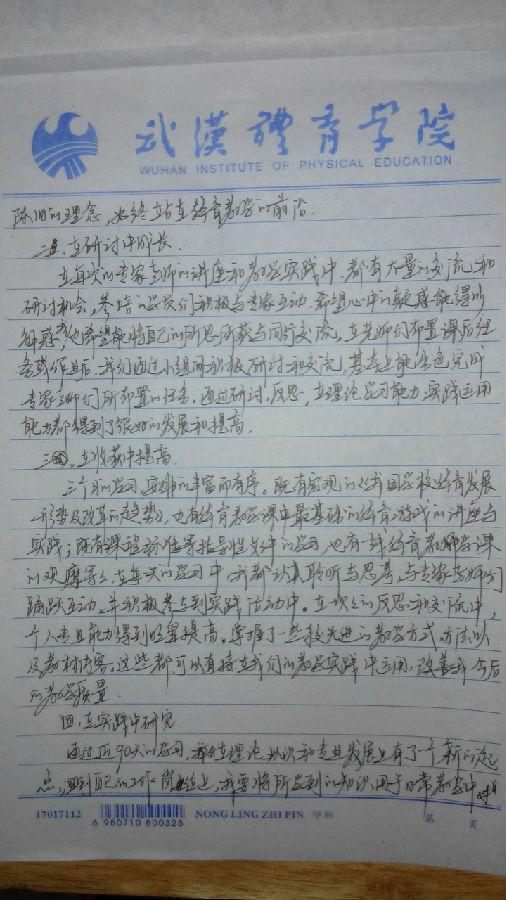 武漢體育学院
WUHAN INSTITUTE OF PHYSICAL EDUCATION
陈旧的理念,始终站在体育教学的前沿.
二、在研讨中成长.
在每次的专家老师的讲座和教学实践中,都有大量的交流和
研讨机会,参培的学员们积极与专家互动,希望心中的疑惑能得以
解惑,也希望能将自己的所思所获与同行交流,在老师们布置课后任
务或作业后,我们通过小组间积极研讨和交流,基本上能出色完成
专家老师们所布置的任务。通过研讨、反思,在理论学习能力、实践运用
能力都得到了很好的发展和提高.
三、在收获中提高.
三个月的学习,安排的丰富而有序。既有宏观的《我国学校体育发展
形势及改革的趋势》,也有体育教学课中最基础的体育游戏的讲座与
实践;既有课程标准等指导性文件的学习,也有一线体育教师学课
的观摩等。在每次的学习中,我都认真聆听与思考,与专家老师们
踊跃互动,并积极参与到实践活动中。在一次次的反思和交流中,
个人专业能力得到明显提高。掌握了一些较先进的教学方式、方法以
及教材内容,这些都可以直接在我们的教学实践中运用,改善我今后
的教学质量.
四、在实践中研究
通过近90天的学习,我在理论认识和专业发展上有了一个新的起
点,回到自己的工作岗位上,我要将所学到的知识,用于日常教学中
17017112
6 980710 800325
NONG LING ZHI PIN 印刷
第 页